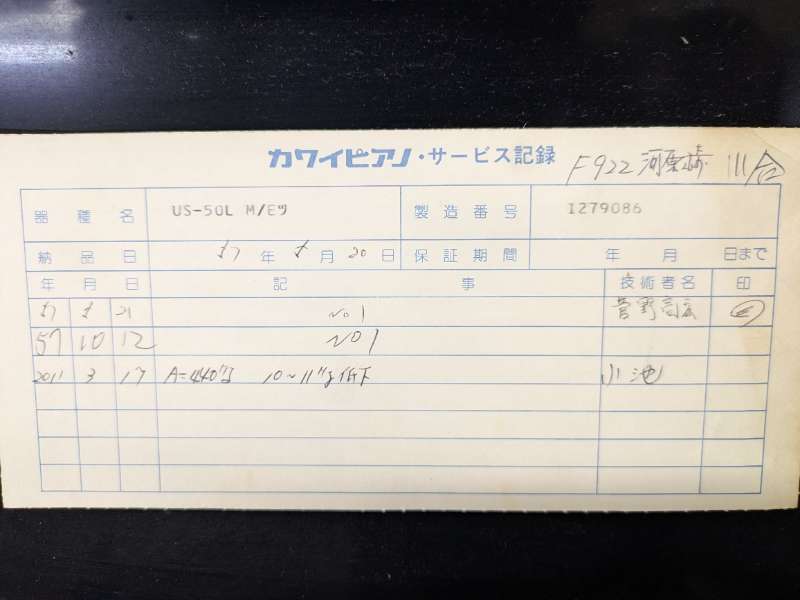 カワイピアノ・サービス記録
F922 河原崎 川合
器種名 US-50L M/Eツ 製造番号 1279086
納品日 57年 月 20日 保証期間 年 月 日まで
年 月 日 記事 技術者名 印
57 21 No1 菅野
57 10 12 No1
2011 3 17 A=440 10~11 低下 小池